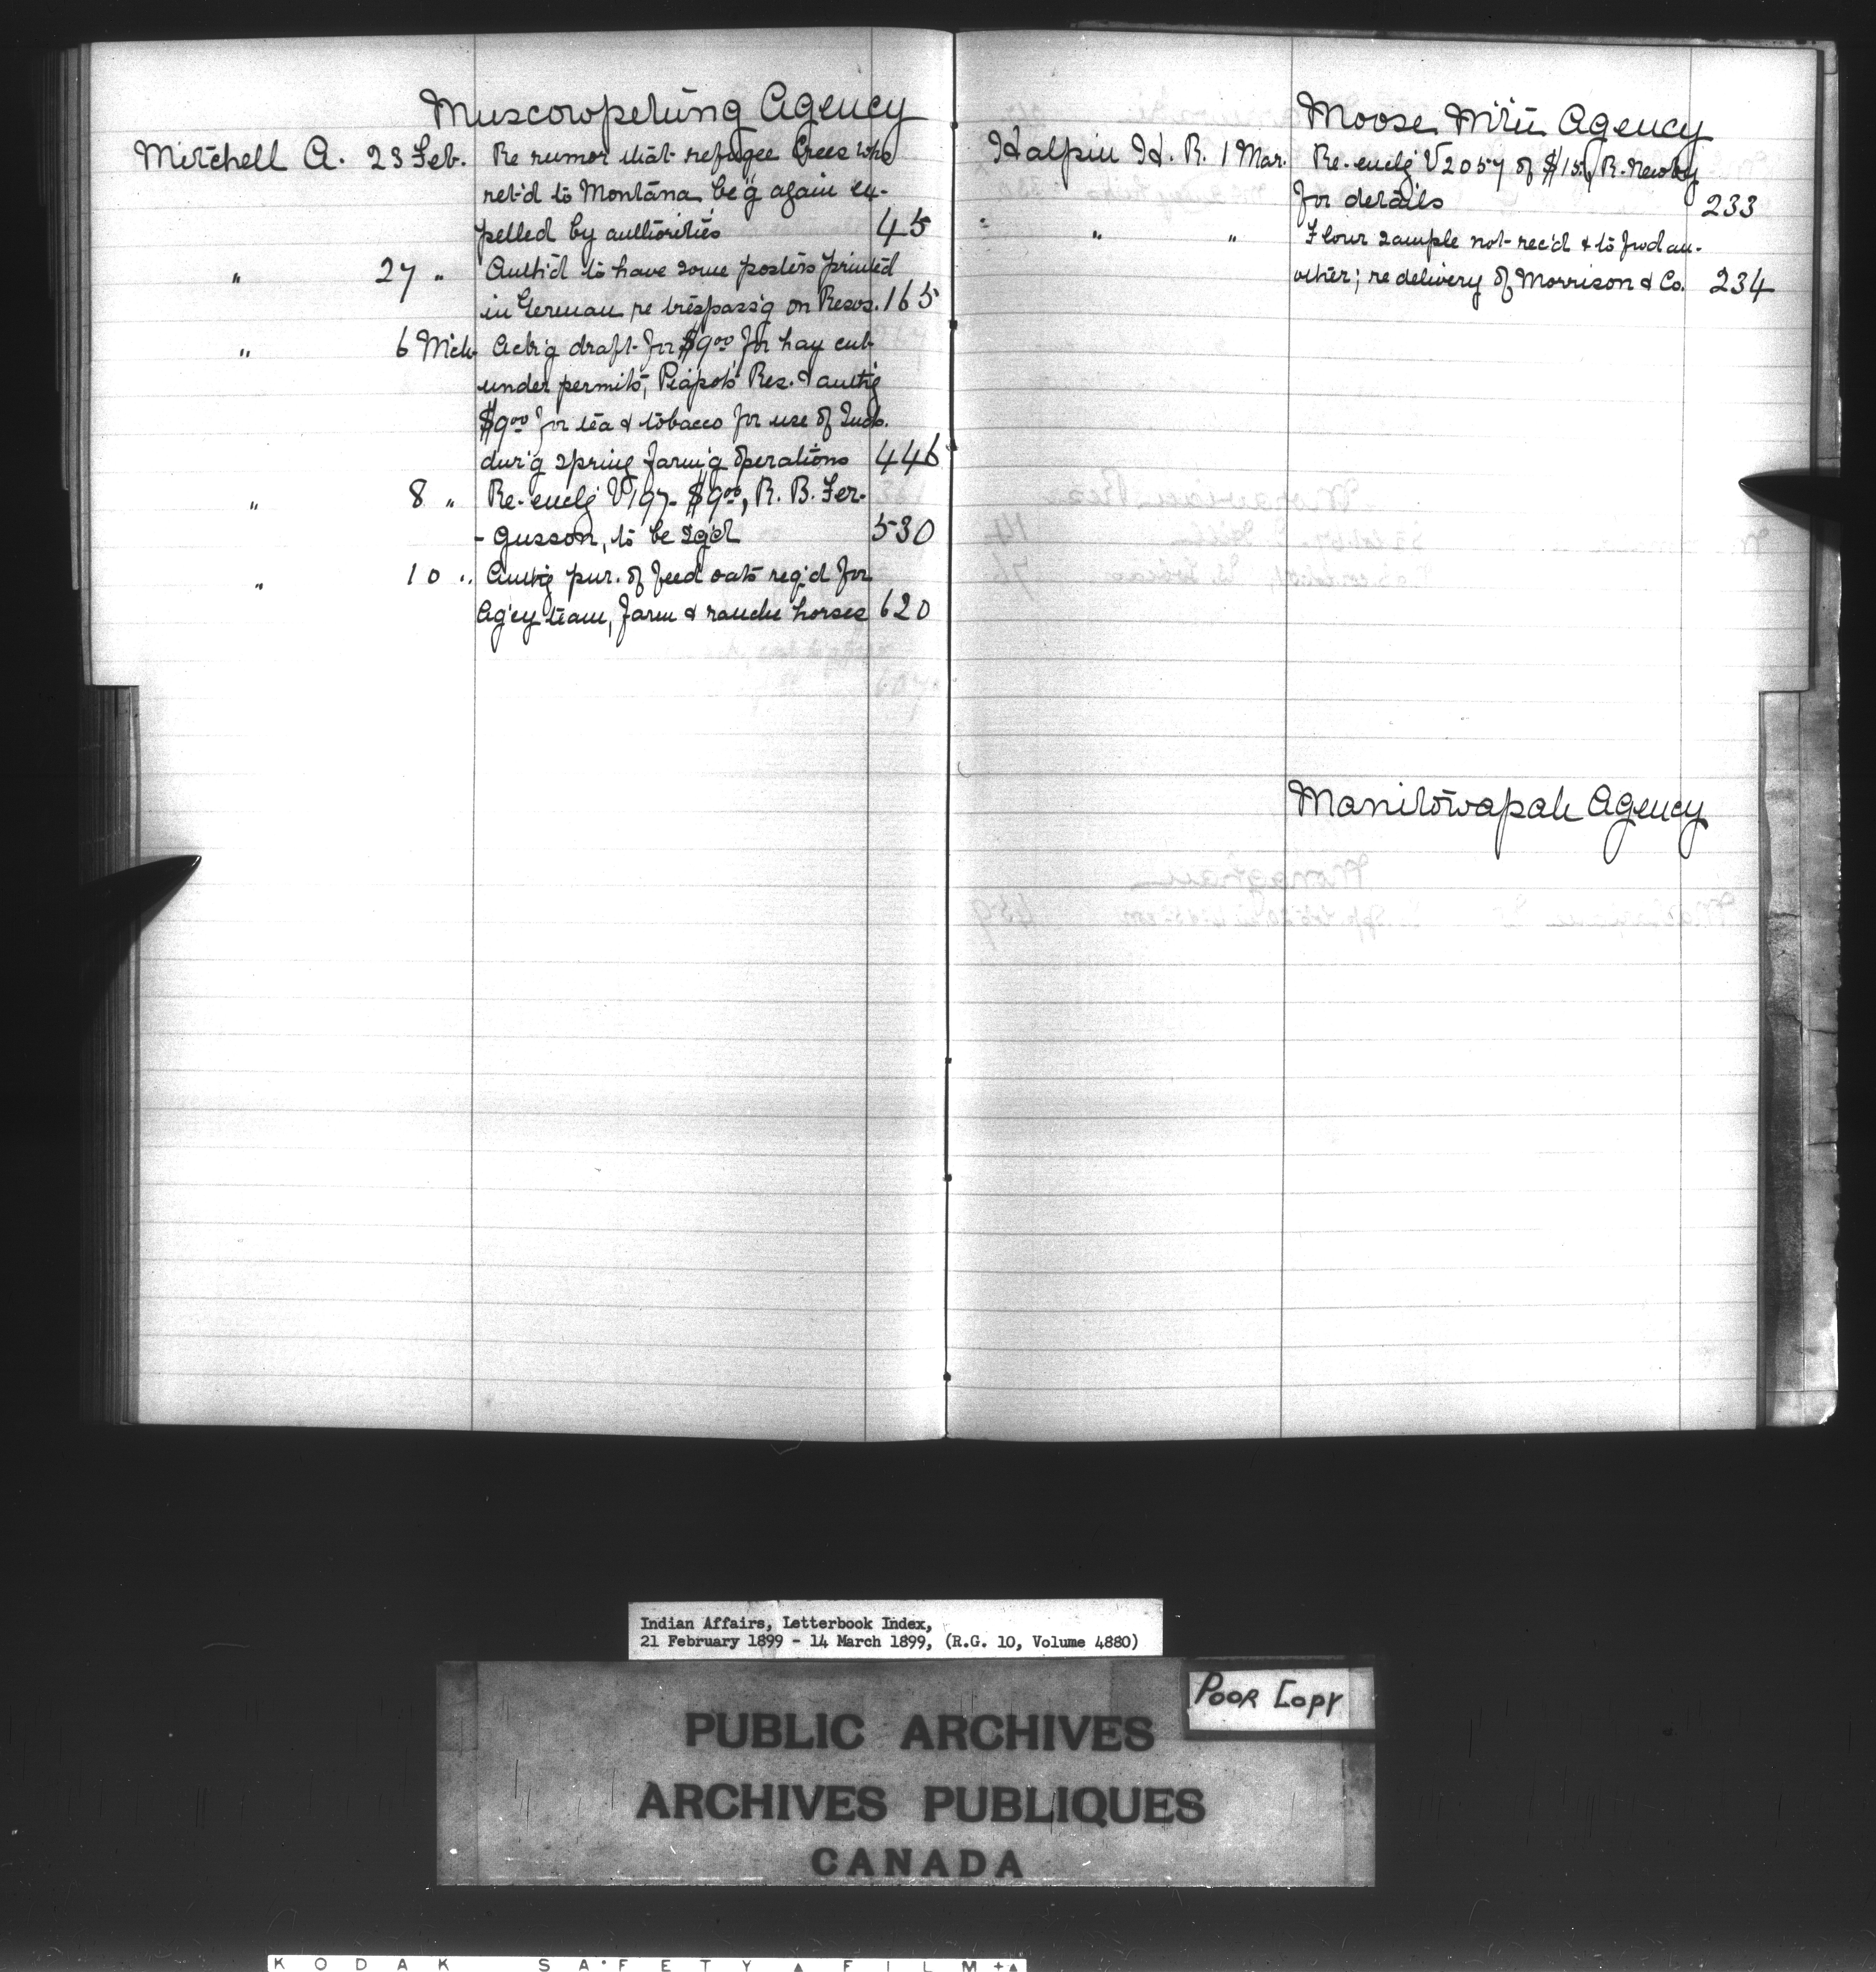 Muscowpetung Agency
Mitchell A. 23 Feb. Re rumor that refugee Crees who
ret'd to Montana be'g again ex-
pelled by authorities 45
" 27 " Auth'd to have some posters printed
in German re trespass'g on Resvs. 165
" 6 Mch Ack'g draft for $9.00 for hay cut
under permits, Piapots Res. & auth'g
$9.00 for tea & tobacco for use of Inds.
dur'g spring farm'g operations 446
" 8 " Re-enclg V197- $9.00, R. B. Fer-
-gusson, to be sg'd 530
" 10 " Auth'g pur. of feed oats req'd for
Ag'cy team, farm & ranche horses 620
Moose Mt'n Agency
Halpin H. R. 1 Mar. Re-enclg V2057 of $15. R. Newby
for details 233
" " Flour sample not rec'd & to fwd an-
other; re delivery of Morrison & Co. 234
Manitowapah Agency
Indian Affairs, Letterbook Index,
21 February 1899 - 14 March 1899, (R.G. 10, Volume 4880)
POOR COPY
PUBLIC ARCHIVES
ARCHIVES PUBLIQUES
CANADA
KODAK SAFETY FILM